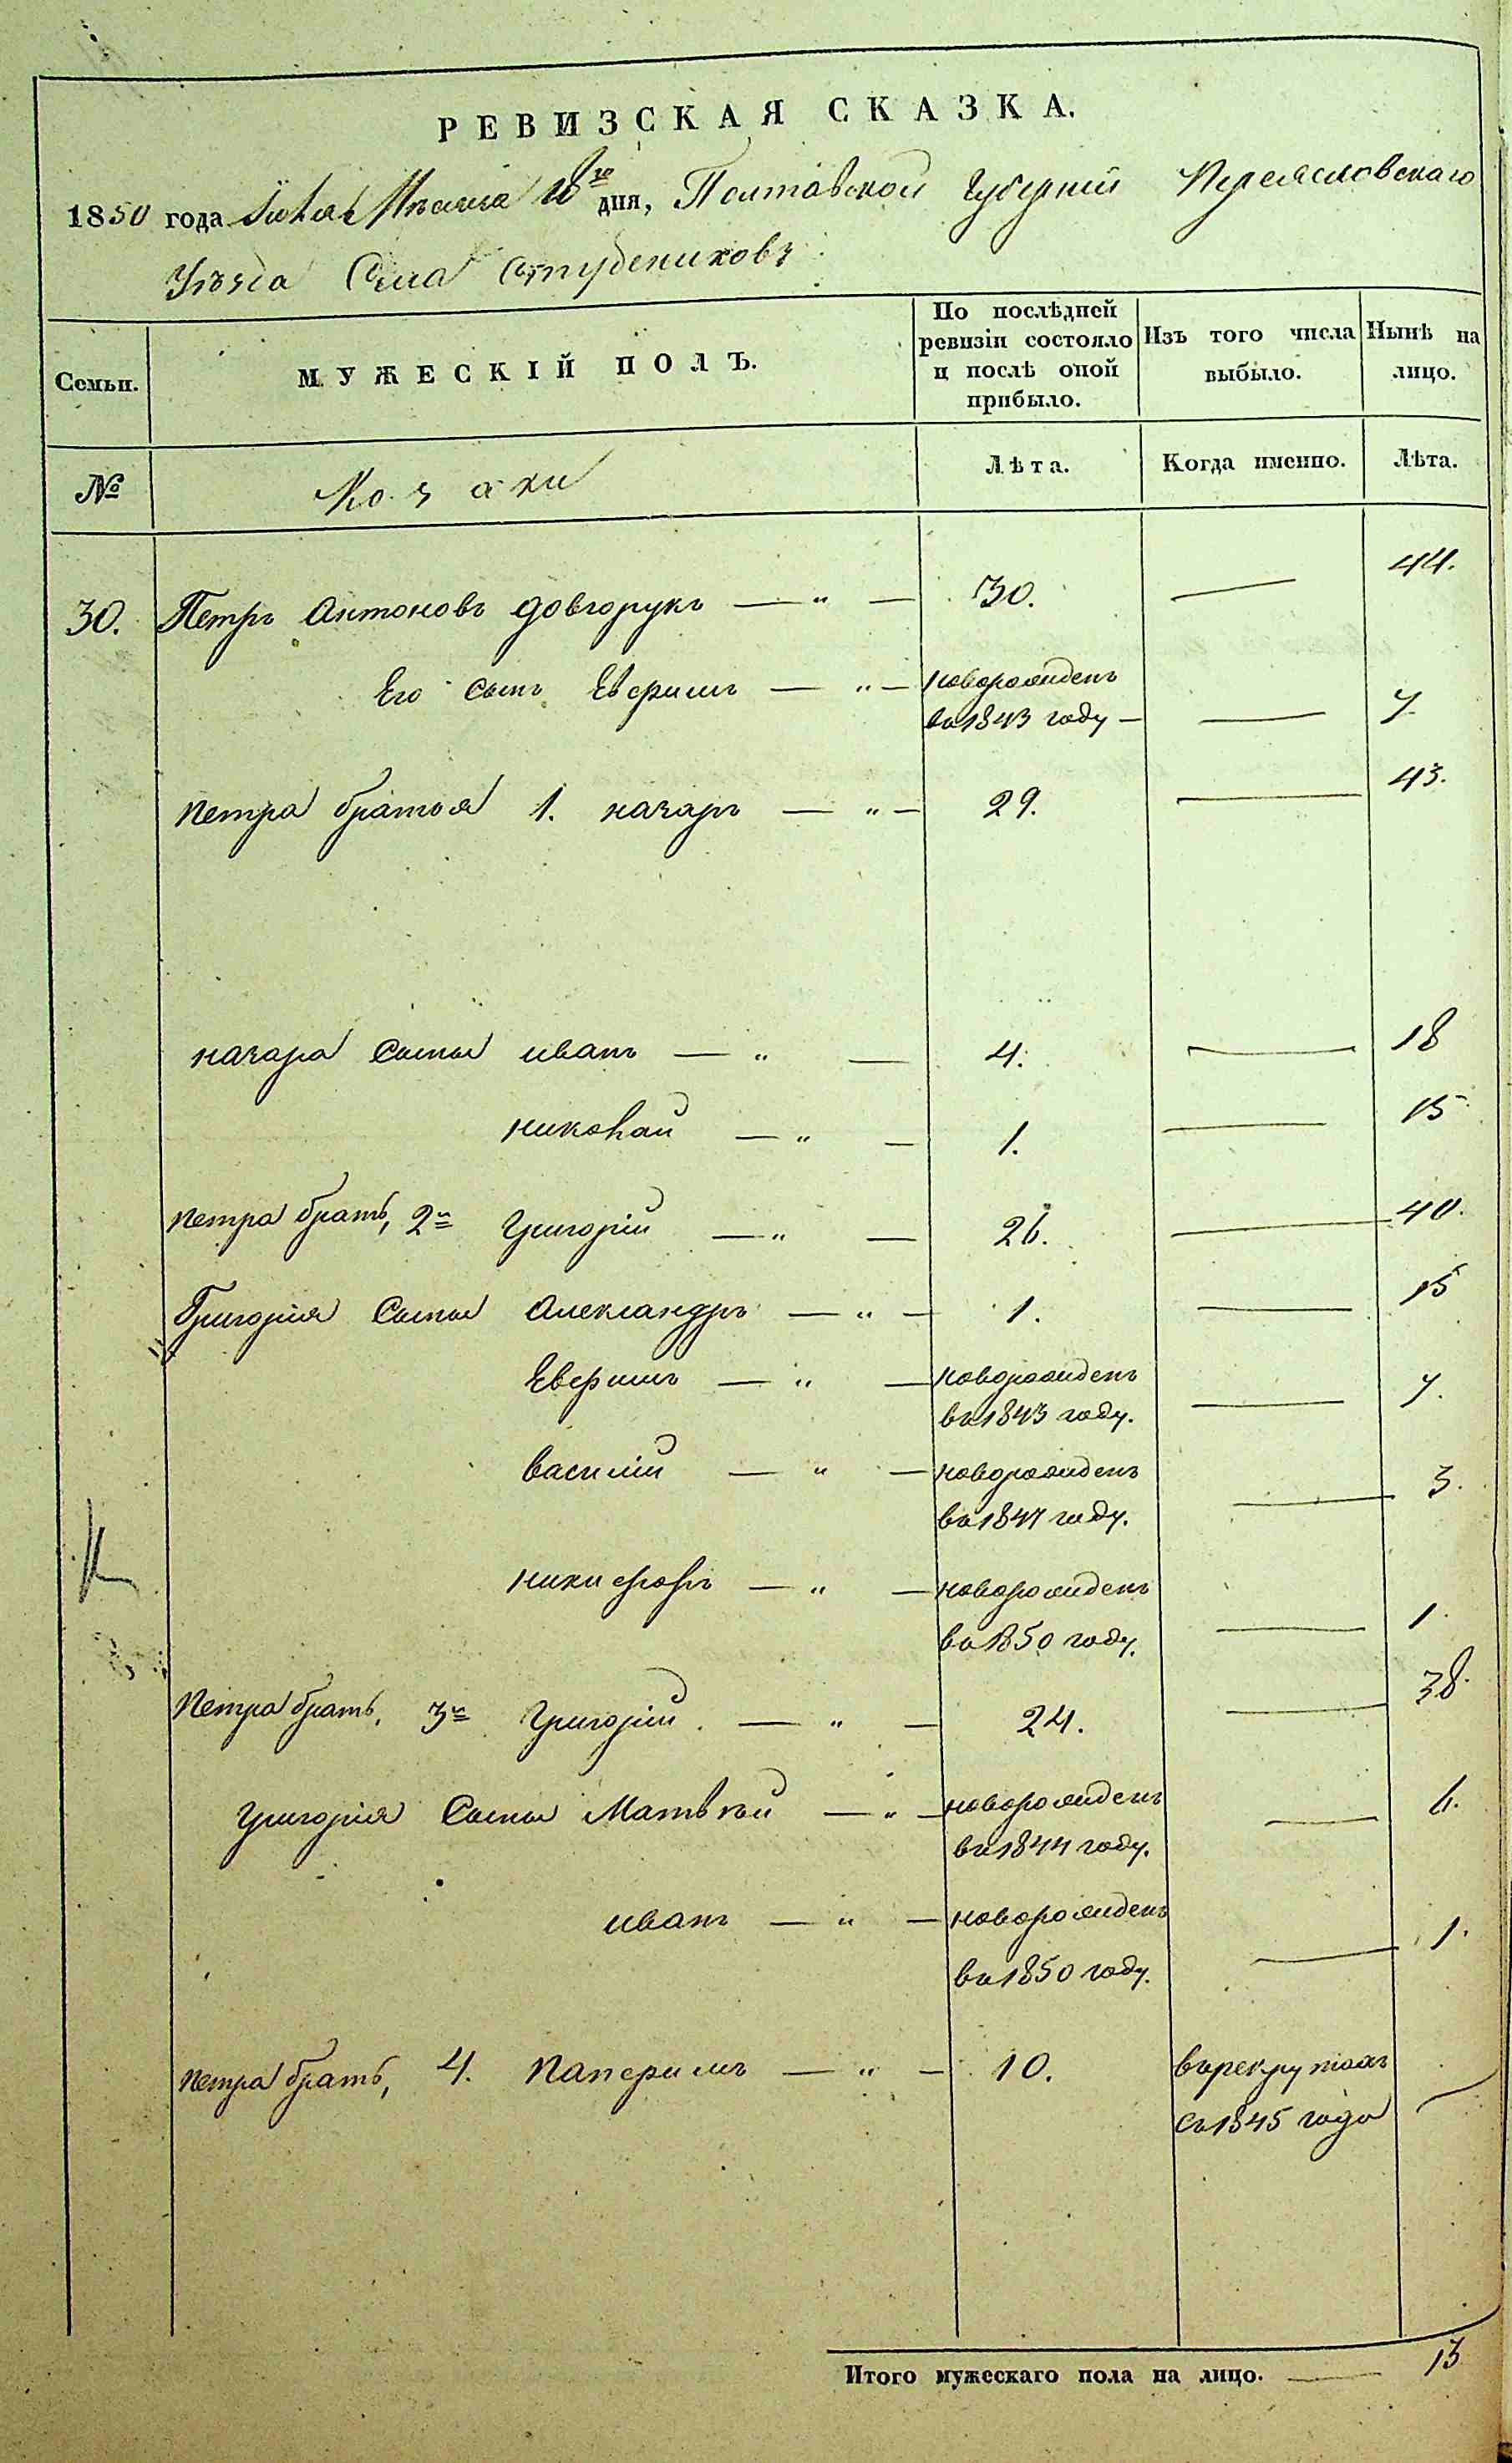 РЕВИЗСКАЯ СКАЗКА.
1850 года Июля Месяца 10го дня, Полтавской Губернии Переясловскаго
Уезда Села Студениковъ
Семьи.
МУЖЕСКІЙ ПОЛЪ.
По послѣдней ревизіи состояло и послѣ оной прибыло.
Изъ того числа выбыло.
Нынѣ на лицо.
№
Козаки
Лѣта.
Когда именно.
Лѣта.
30. Петръ Антоновъ Довгорукъ — „ — 30. — 44.
Его сынъ Евфимъ — „ — новорожденъ
въ 1843 году — — 7
Петра братья 1. Назаръ — „ — 29. — 43.
Назара сыны Иванъ — „ — 4. — 18
Николай — „ — 1. — 15
Петра братъ, 2й Григорій — „ — 26. — 40.
Григорія сыны Александръ — „ — 1. — 15
Евфимъ — „ — новорожденъ
въ 1843 году. — 7.
Василій — „ — новорожденъ
въ 1847 году. — 3.
Никифоръ — „ — новорожденъ
въ 1850 году. — 1.
Петра братъ, 3й Григорій — „ — 24. — 38.
Григорія сыны Матвѣй — „ — новорожденъ
въ 1844 году. — 6.
Иванъ — „ — новорожденъ
въ 1850 году. — 1.
Петра братъ, 4. Панфилъ — „ — 10. въ рекрутахъ
съ 1845 года —
Итого мужескаго пола на лицо. — 13